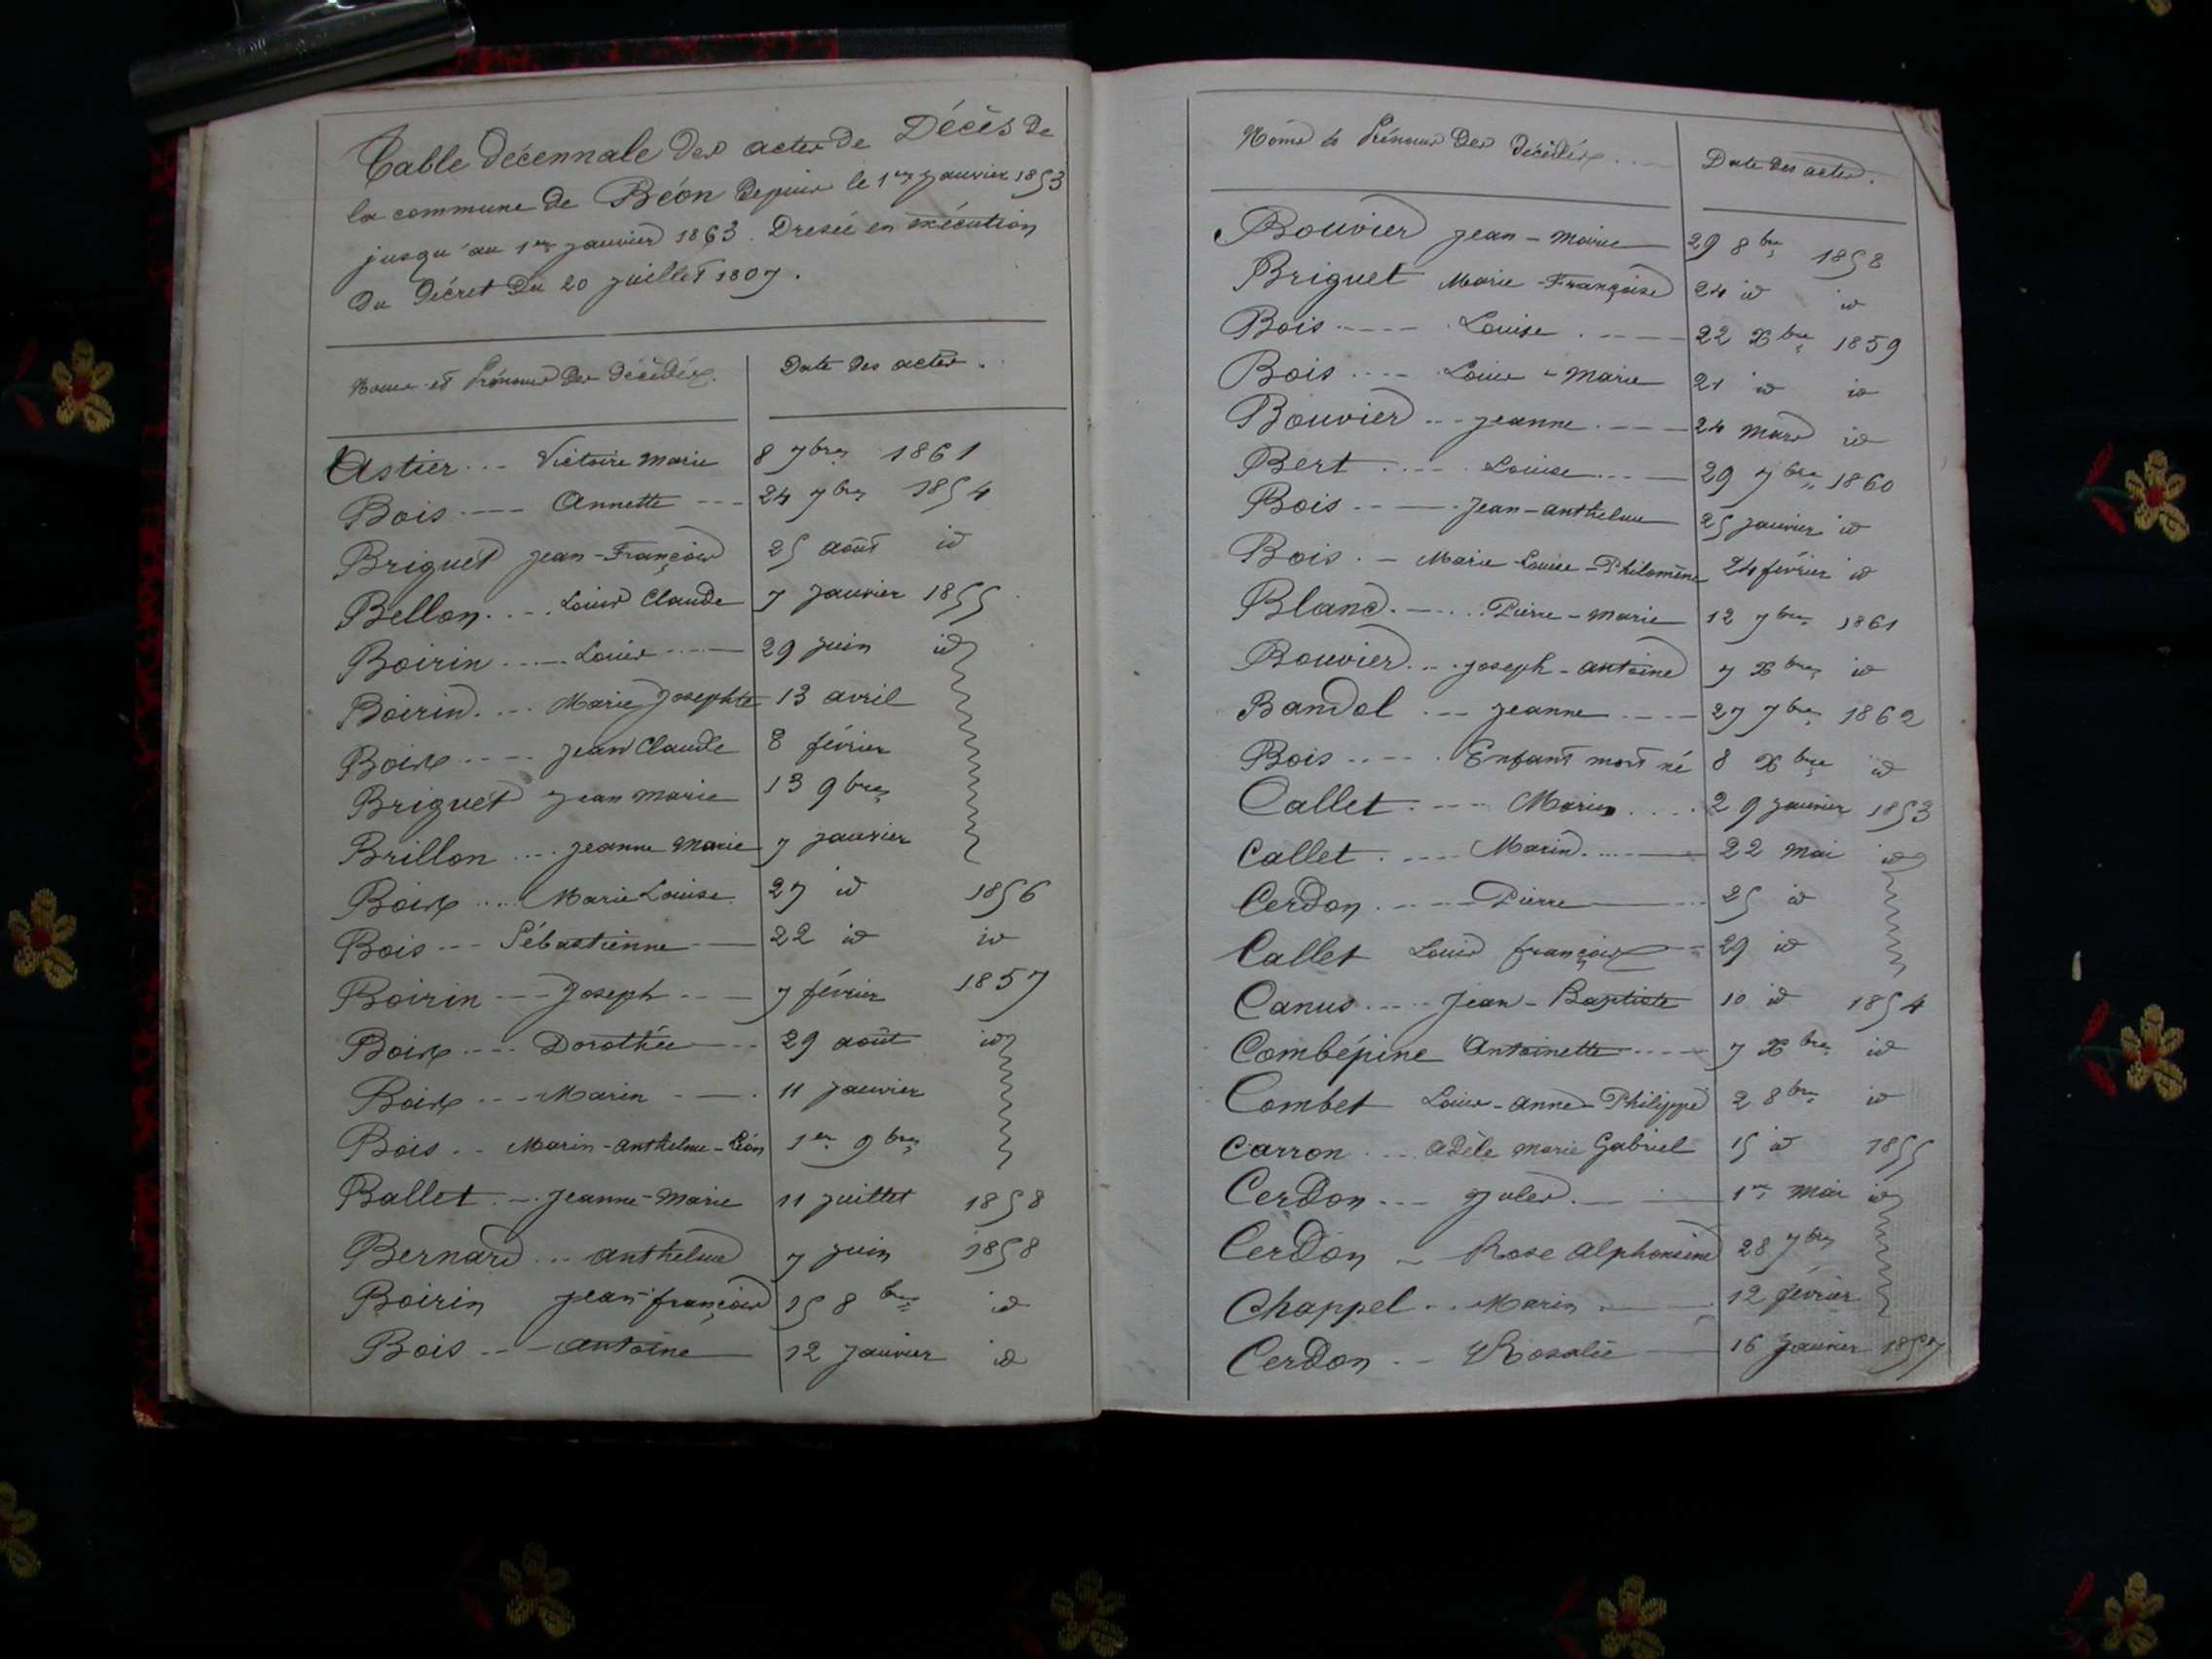 Table décennale des actes de Décès de
la commune de Béon depuis le 1er janvier 1853
jusqu'au 1er janvier 1863. Dressée en exécution
du décret du 20 juillet 1807.
Noms et Prénoms des décédés. Date des actes.
Astier ... Victoire Marie 8 7bre 1861
Bois ---- Annette --- 24 7bre 1854
Briguet Jean-François 25 août id
Bellon .... Louis Claude 7 janvier 1855
Boirin ..... Louis ---- 29 juin id
Boirin .... Marie Josephte 13 avril
Boix .... Jean Claude 8 février
Briguet Jean Marie 13 9bre
Brillon .... Jeanne Marie 7 janvier
Boix .... Marie Louise 27 id 1856
Bois --- Sébastienne --- 22 id id
Boirin --- Joseph --- 7 février 1857
Boix .... Dorothée --- 29 août id
Boix --- Marin --- 11 janvier
Bois .. Marin-Anthelme-Léon 1er 9bre
Ballet .-. Jeanne-Marie 11 juillet 1858
Bernard ... Anthelme 7 juin 1858
Boirin Jean-françois 15 8bre id
Bois --- Antoine 12 janvier id
Noms et Prénoms des décédés .... Date des actes.
Bouvier Jean-Marie 29 8bre 1858
Briguet Marie-Françoise 24 id id
Bois ---- Louise ---- 22 Xbre 1859
Bois .... Louis-Marie 21 id id
Bouvier --- Jeanne ---- 24 mars id
Bert ..... Louise .... 29 7bre 1860
Bois ---- Jean-Anthelme 25 janvier id
Bois .- Marie-Louise-Philomène 24 février id
Blanc .-... Pierre-Marie 12 7bre 1861
Bouvier .... Joseph-Antoine 7 Xbre id
Bandol --- Jeanne ---- 27 7bre 1862
Bois ..... Enfant mort né 8 Xbre id
Callet .---- Marin .... 29 janvier 1853
Callet ..... Marin ..... 22 mai id
Cerdon ..---- Pierre ---- 25 id
Callet Louis françois -- 29 id
Canus .... Jean-Baptiste 10 id 1854
Combépine Antoinette ---- 7 Xbre id
Combet Louis-Anne-Philippe 2 8bre id
Carron ... Adèle Marie Gabriel 15 id 1855
Cerdon --- Jules .--- 1er mai id
Cerdon - Rose Alphonsine 28 7bre
Chappel .. Marin ---- 12 février
Cerdon .. Rosalie --- 16 janvier 1857